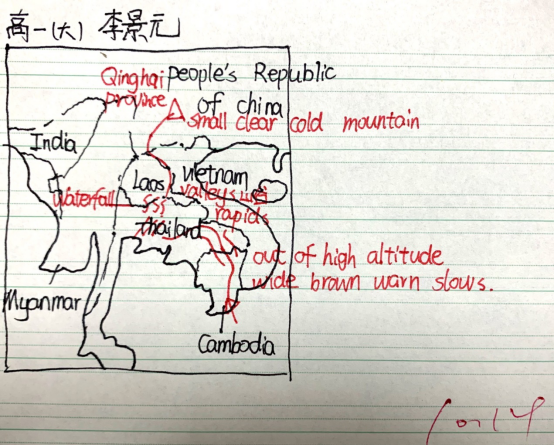 高一(六) 李景元
Qinghai people's Republic
province of china
small clear cold mountain
India
Laos Vietnam
Waterfall valleys
rapids
thailand
out of high altitude
wide brown warn slows.
Myanmar
Cambodia